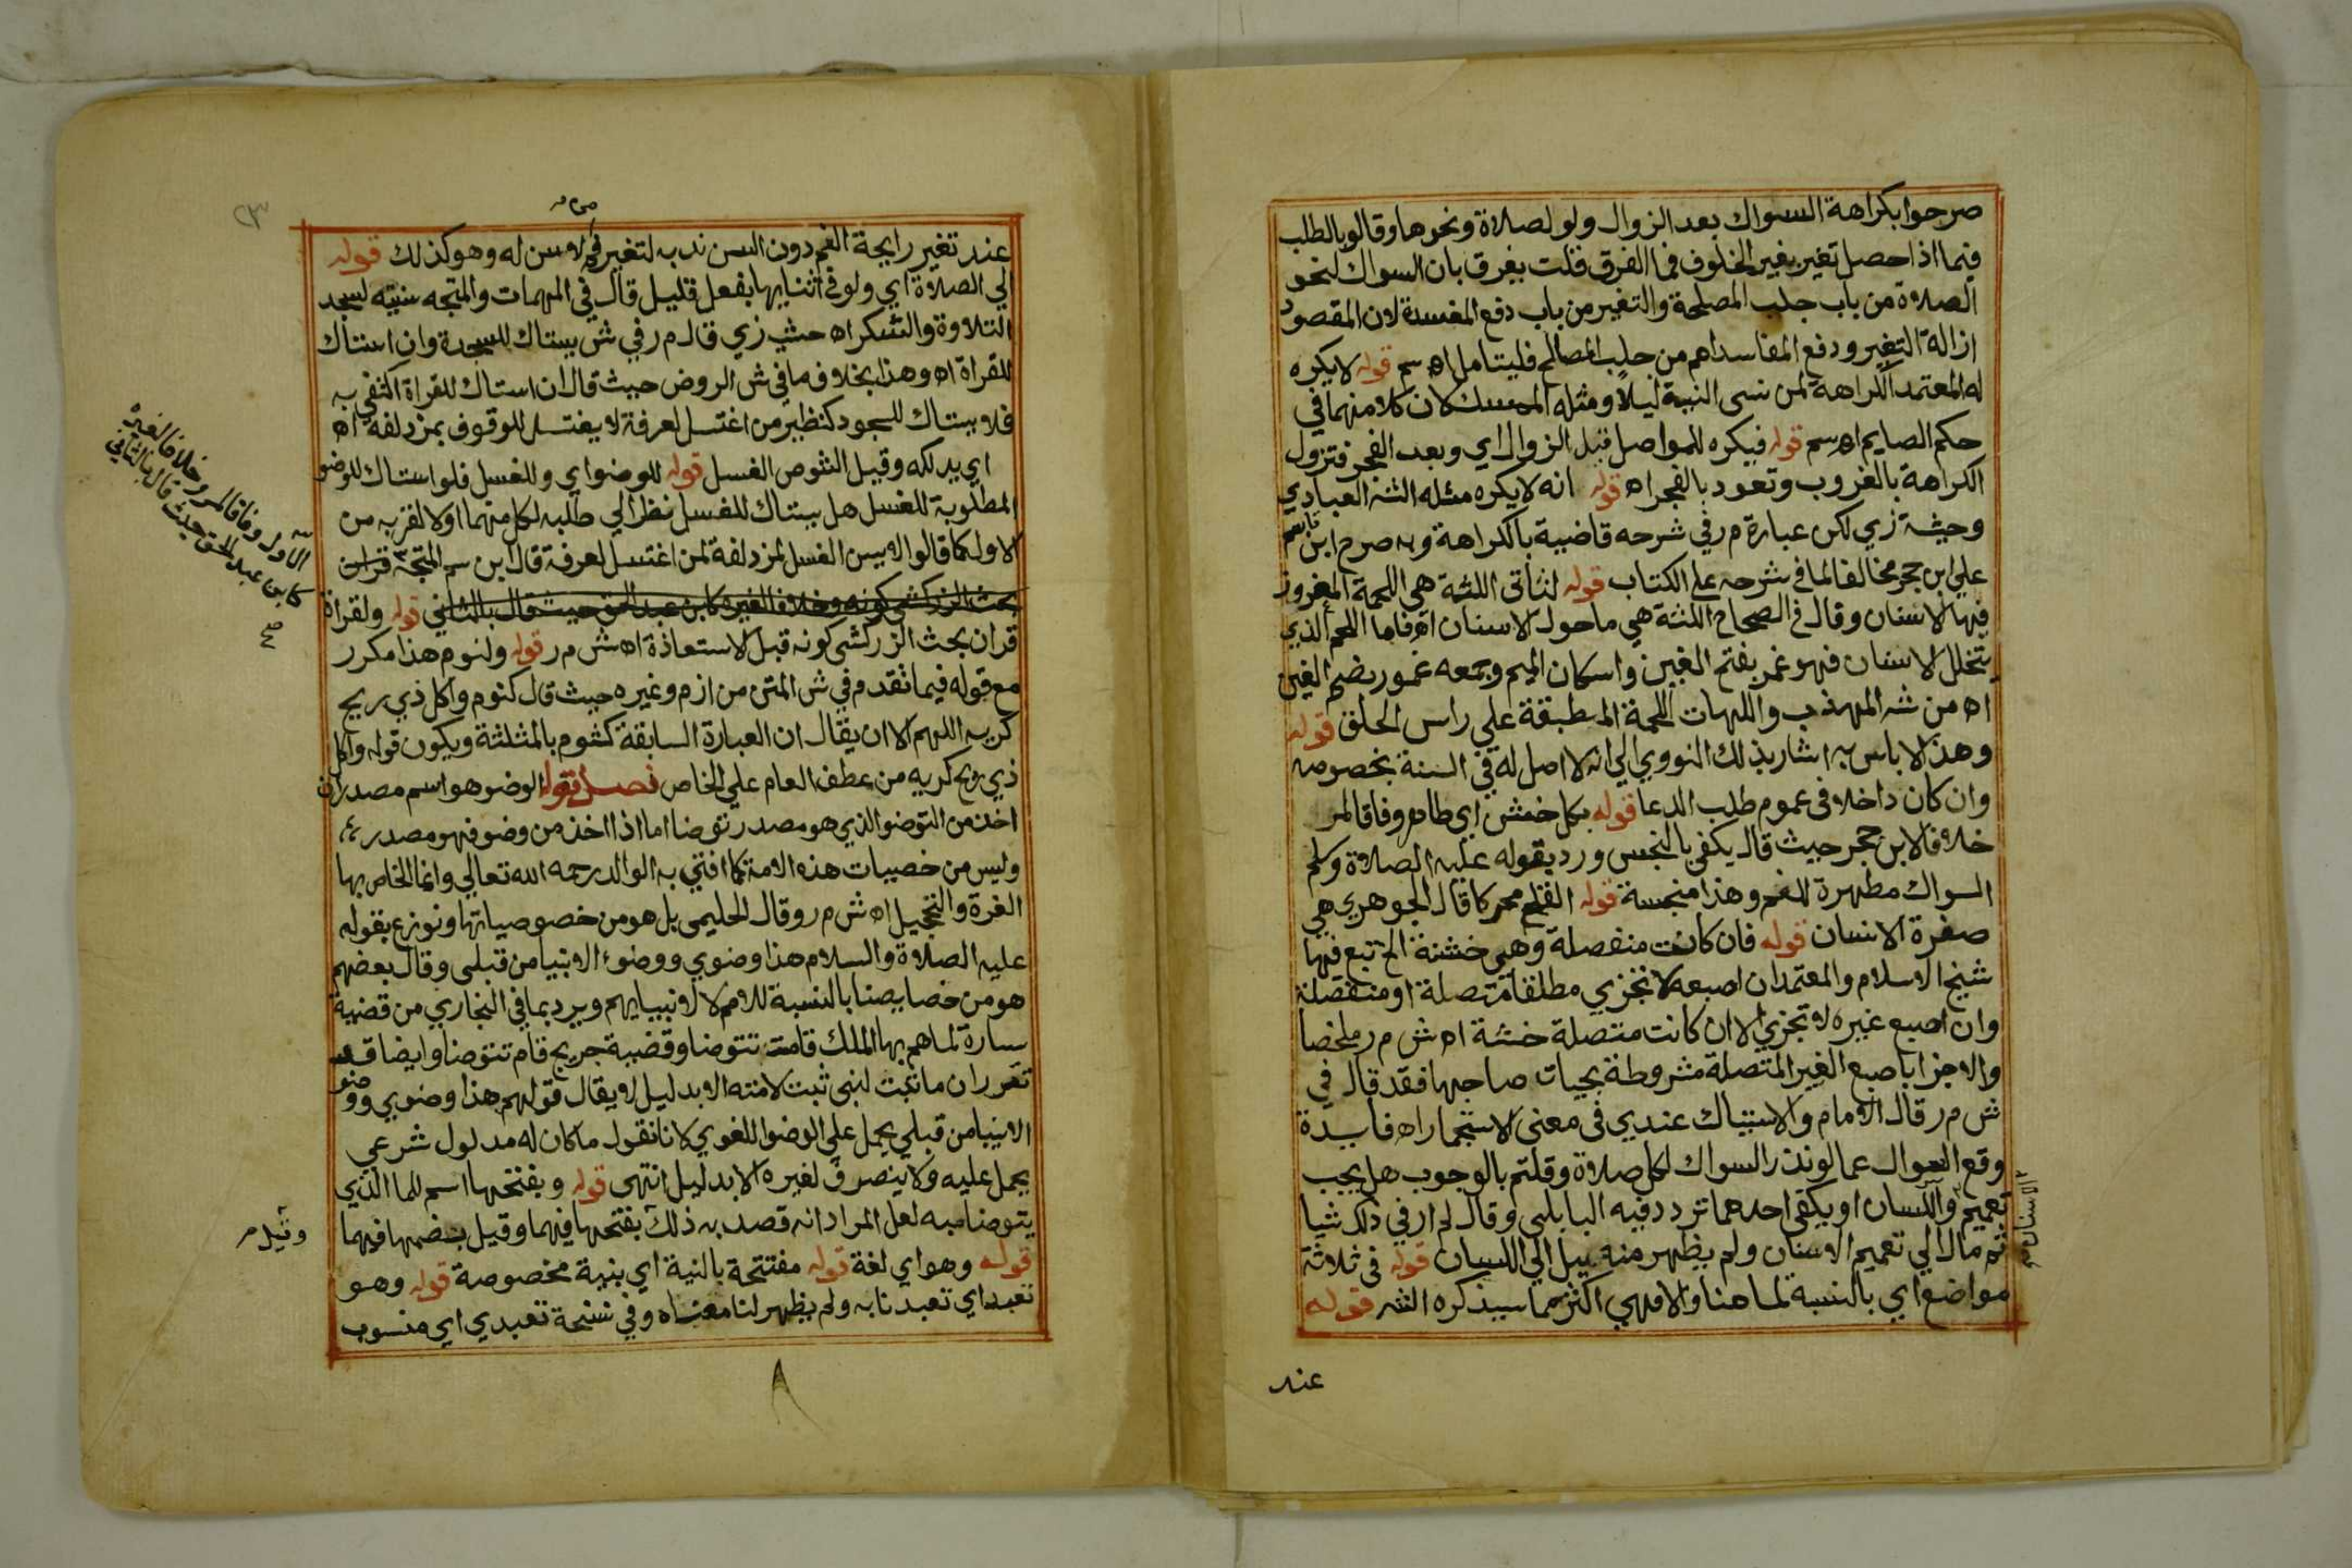 صرحوا بكراهة السواك بعد الزوال ولو لصلاة ونحوها وقالوا بالطلب
فيما اذا حصل تغير بغير الخلوف فما الفرق قلت يفرق بان السواك لنحو
الصلاة من باب جلب المصلحة والتغير من باب دفع المفسدة لان المقصود
ازالة التغير ودفع المفاسد اهم من جلب المصالح فليتامل اه سم قوله لا يكره
له المعتمد الكراهة لمن نسى النية ليلا ومثله الممسك لان كلا منهما في
حكم الصايم اه سم قوله فيكره للمواصل قبل الزوال اي وبعد الفجر فتزول
الكراهة بالغروب وتعود بالفجر اه قوله انه لا يكره مثله الشه العبادي
وحيثة زي لكن عبارة م ر في شرحه قاضية بالكراهة وبه صرح ابن قاسم
علي ابن حجر مخالفا لما في شرحه علي الكتاب قوله لثاتى اللثة هي اللحمة المغروز
فيها الاسنان وقال في الصحاح اللثة هي ما حول الاسنان اه فاما اللحم الذي
يتخلل الاسنان فهو غمر بفتح الغين واسكان الميم وجمعه غمور بضم الغين
اه من شه المهذب واللهات اللحمة المطبقة علي راس الحلق قوله
وهذا لا باس به اشار بذلك النووي الي انه لا اصل له في السنة بخصوصه
وان كان داخلا في عموم طلب الدعا قوله بكل خشن اي طاهر وفاقا لمر
خلافا لابن حجر حيث قال يكفي بالنجس ورد بقوله عليه الصلاة وسلم
السواك مطهرة للفم وهذا منجسة قوله القلح محركا قال الجوهري هي
صفرة الاسنان قوله فان كانت منفصلة وهي خشنة الخ تبع فيها
شيخ الاسلام والمعتمد ان اصبعه لا تجزي مطلقا متصلة او منفصلة
وان اصبع غيره لا تجزي الا ان كانت متصلة خشنة اه ش م ر ملخصا
والاجزا باصبع الغير المتصلة مشروطة بحيات صاحبها فقد قال في
ش م ر قال الامام والاستياك عندي في معنى الاستجمار اه فايدة
وقع السوال عما لو نذر السواك لكل صلاة وقلتم بالوجوب هل يجب
تعميم واللسان او يكفى احدهما تردد فيه البابلي وقال لم ار في ذلك شيا
ثم مال الي تعميم الاسنان ولم يظهر منه ميل الي اللسان قوله في ثلاثة
مواضع اي بالنسبة لما هنا والا فهي اكثر مما سيذكره الشه قوله
الاسنان
عند
عند تغير رايحة الفم دون السن ندب لتغير فم لا سن له وهو كذلك قوله
الي الصلاة اي ولو في اثنايها بفعل قليل قال في المهمات والمتجه سنيته لسجد
التلاوة والشكر اه حشي زي قال م ر في ش يستاك للسجدة وان استاك
للقراة اه وهذا بخلاف ما في ش الروض حيث قال ان استاك للقراة اكتفي به
فلا يستاك للسجود كنظير من اغتسل لعرفة لا يغتسل للوقوف بمزدلفة اه
اي يدلكه وقيل الشوص الغسل قوله للوضو اي وللغسل فلو استاك للوضو
المطلوبة للغسل هل يستاك للغسل نظرا الي طلبه لكل منهما اولا لقربه من
الاول كما قالوا لا يسن الغسل لمزدلفة لمن اغتسل لعرفة قال ابن سم المتجه قران
بحث الزركشي كونه وخلافا لغيره كابن عبد الحق حيث قال بالثاني قوله ولقراة
قران بحث الزركشى كونه قبل الاستعاذة اه ش م ر قوله ولنوم هذا مكرر
مع قوله فيما تقدم في ش المتن من ازم وغيره حيث قال كنوم واكل ذي ريح
كريه اللهم الا ان يقال ان العبارة السابقة كثوم بالمثلثة ويكون قوله واكل
ذي ريح كريه من عطف العام علي الخاص فصل قوله الوضو هو اسم مصدر ان
اخذ من التوضو الذي هو مصدر توضا اما اذا اخذ من وضو فهو مصدر
وليس من خصيات هذه الامة كما افتي به الوالد رحمه الله تعالي وانما الخاص بها
الغرة والتحجيل اه ش م ر وقال الحليمي بل هو من خصوصياتها ونوزع بقوله
عليه الصلاة والسلام هذا وضوي ووضوء الانبيا من قبلي وقال بعضهم
هو من خصايصنا بالنسبة للامم لا لانبيايهم ويرد بما في البخاري من قضية
سارة لما هم بها الملك قامت تتوضا وقضية جريج قام تتوضا وايضا قد
تقرر ان ما ثبت لنبي ثبت لامته الا بدليل لا يقال قولهم هذا وضوي ووضو
الانبيا من قبلي يحمل علي الوضو اللغوي لانا نقول ما كان له مدلول شرعي
يحمل عليه ولا ينصرف لغيره الا بدليل انتهى قوله وبفتحها اسم للما الذي
يتوضا به لعل المراد انه قصد به ذلك بفتحها فيهما وقيل بضمها فيهما
قوله وهو اي لغة قوله مفتتحة بالنية اي بنية مخصوصة قوله وهو
تعبد اي تعبدنا به ولم يظهر لنا معناه وفي نسخة تعبدي اي منسوب
الاول وفاقا لمر وخلافا لغيره
كابن عبد الحق حيث قال بالثاني
صح
وقيل م
٢٣